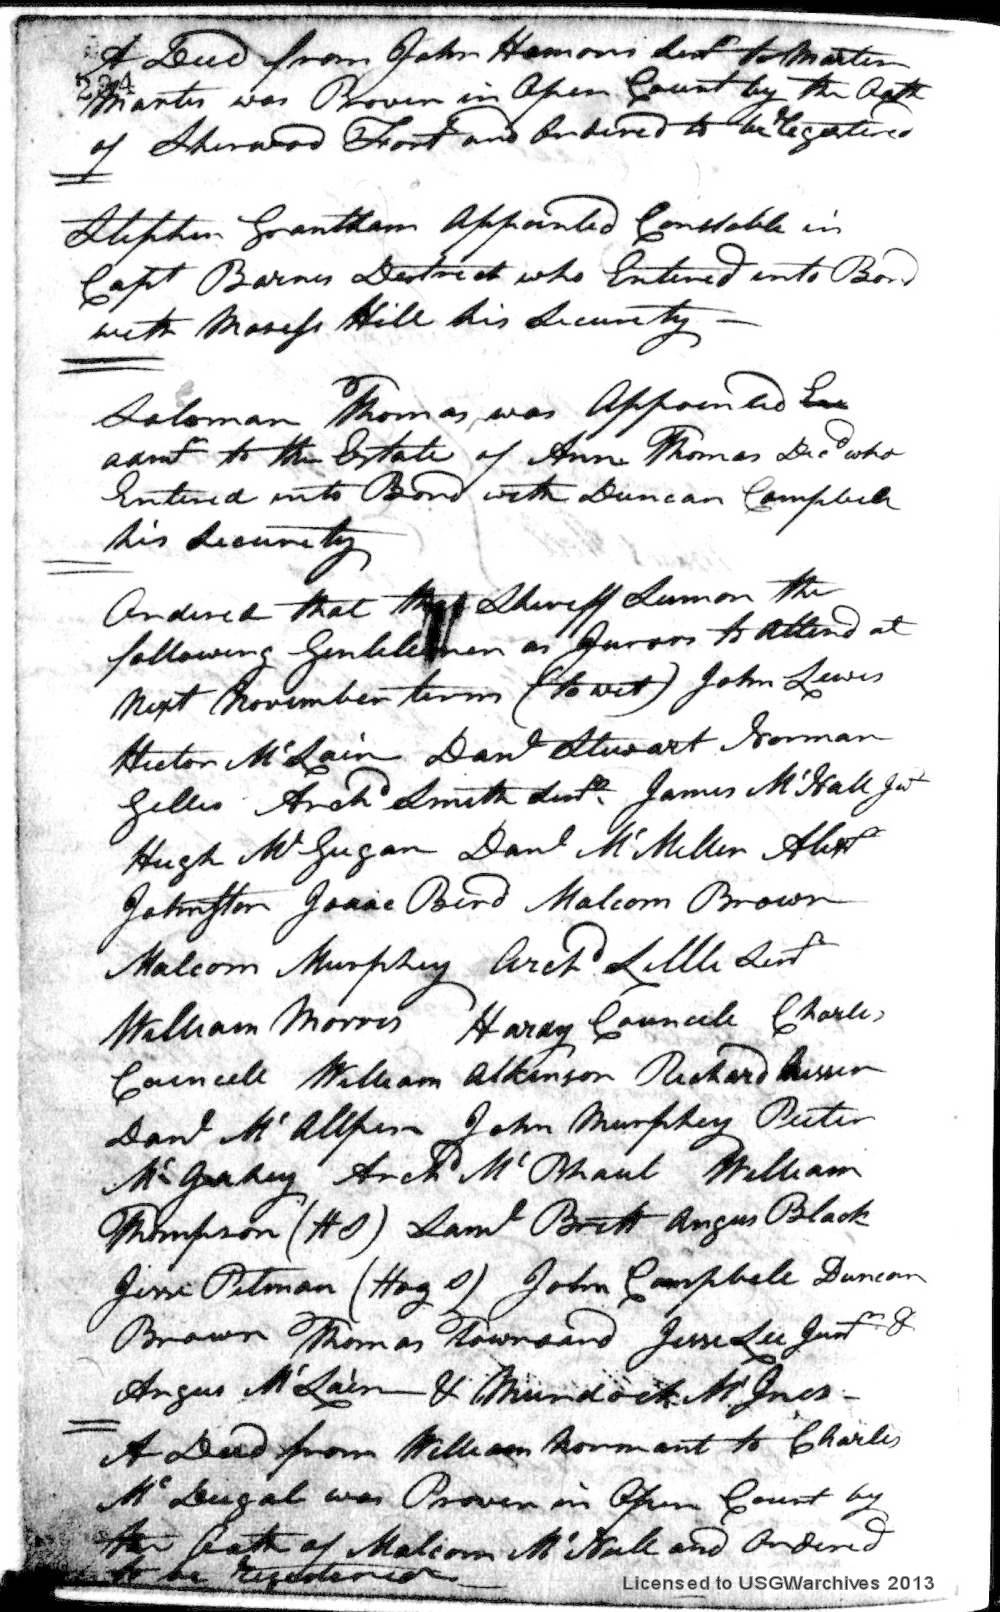 A Deed from John Hamons Senr to Martin
234
Martin was Proven in Open Court by the Oath
of Sherwood Fort and Ordered to be Registered
Stephen Grantham Appointed Constable in
Capt Barnes Destrect who Entered into Bond
with Moses Hill his Securety
Saloman Thomas was Appointed
admr to the Estate of Ann Thomas Decd who
Entered into Bond with Duncan Campbell
his Securety
Ordered that the Shereff Sumon the
following Gentlemen as Jurors to Attend at
Next November term (to wit) John Lewis
Hector McLain Danl Stewart Norman
Gilles Archd Smith Senr James McNall Jur
Hugh McGugan Danl McMillen Alexr
Johnston Isaac Bird Malcom Brown
Malcom Murphey Archd Little Senr
William Morris Hardy Councell Charles
Councell William Atkinson Richard
Danl McAllpin John Murphey Peeter
McGahey Archd McPhaul William
Thompson (H S) Saml Britt Angus Black
Jesse Pitman (Hog S) John Campbell Duncan
Brown Thomas Townsand Jesse Lee Junr &
Angus McLain & Murdock McInes
A Deed from William Normant to Charles
McDugal was Proven in Open Court by
the Oath of Malcom McNall and Ordered
to be Registered
Licensed to USGWarchives 2013